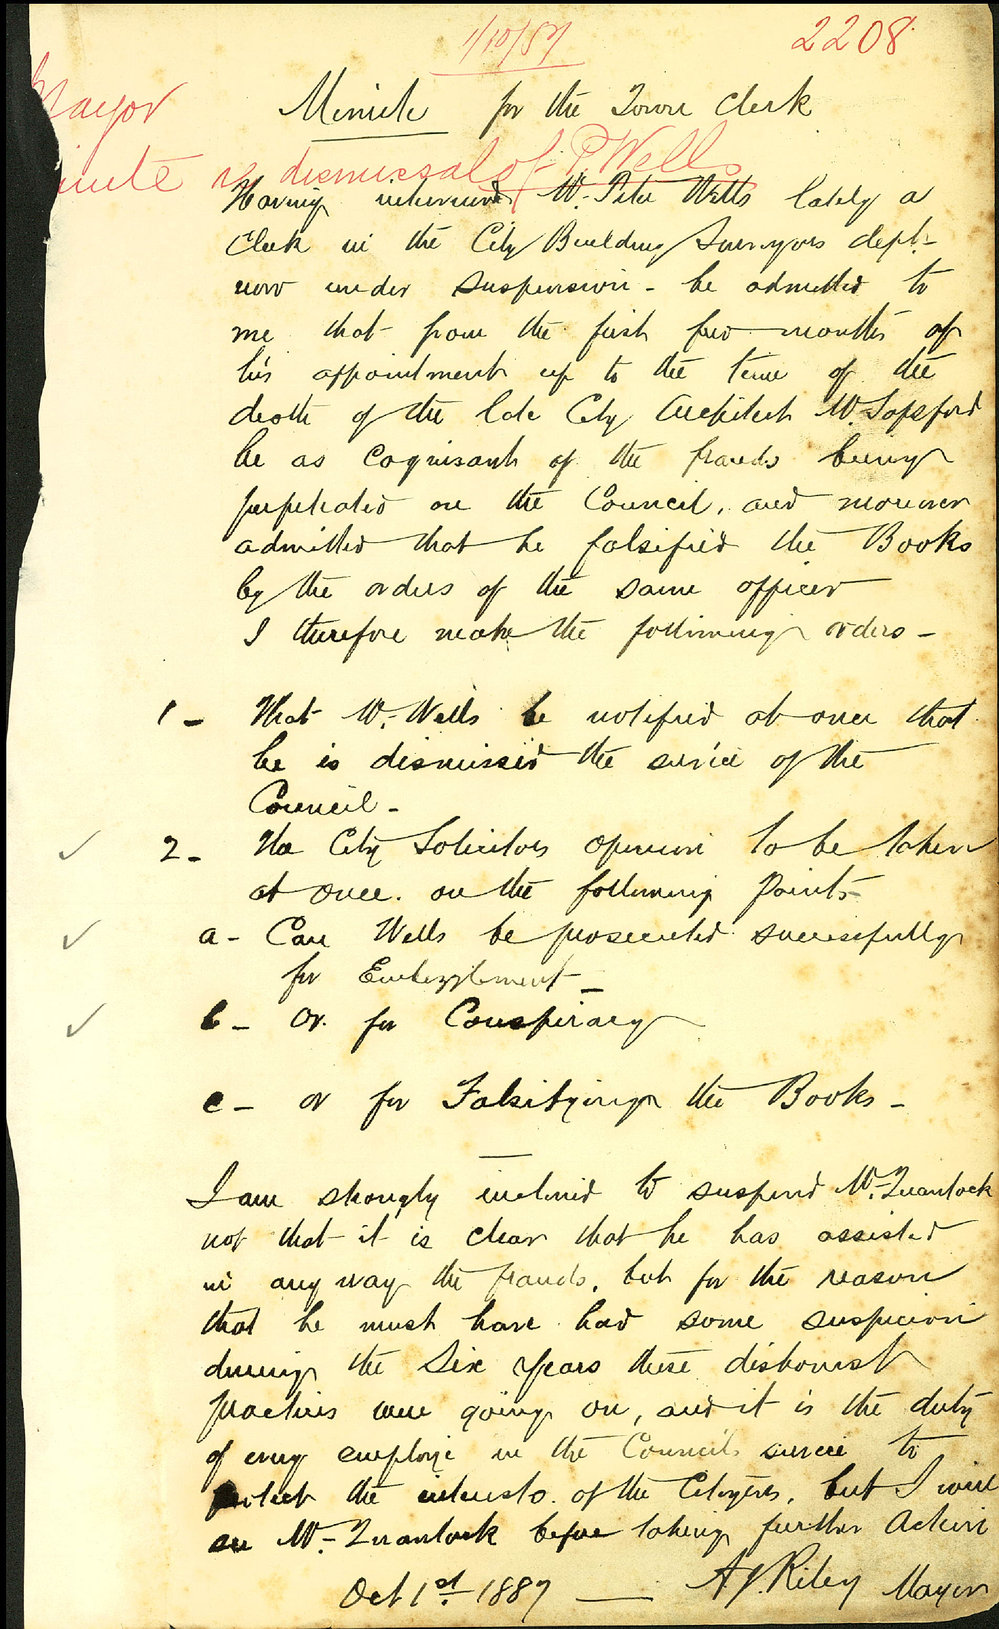 1/10/87
2208
Mayor
Minute for the Town Clerk
inute re dismissal of P Wells
Having interviewed Mr. Peter Wells lately a
Clerk in the City Building Surveyors dept.-
now under suspension - he admitted to
me that from the first few months of
his appointment up to the time of the
death of the late City Architect Mr. Sapsford
he as cognisant of the frauds being
perpetrated on the Council, and moreover
admitted that he falsified the Books
by the orders of the same officer
I therefore make the following orders -
1 - That Mr. Wells be notified at once that
he is dismissed the service of the
Council -
2 - The City Solicitors opinion to be taken
at once. on the following Points -
a - Can Wells be prosecuted successfully
for Embezzlement -
b - Or. for Conspiracy
c - or for Falsifying the Books -
I am strongly inclined to suspend Mr. Quantock
not that it is clear that he has assisted
in any way the frauds, but for the reason
that he must have had some suspicion
during the Six Years these dishonest
practices were going on, and it is the duty
of every employé in the Councils service to
protect the interests of the Citizens, but I will
see Mr. Quantock before taking further Action
Oct 1st. 1887 — A J. Riley Mayor